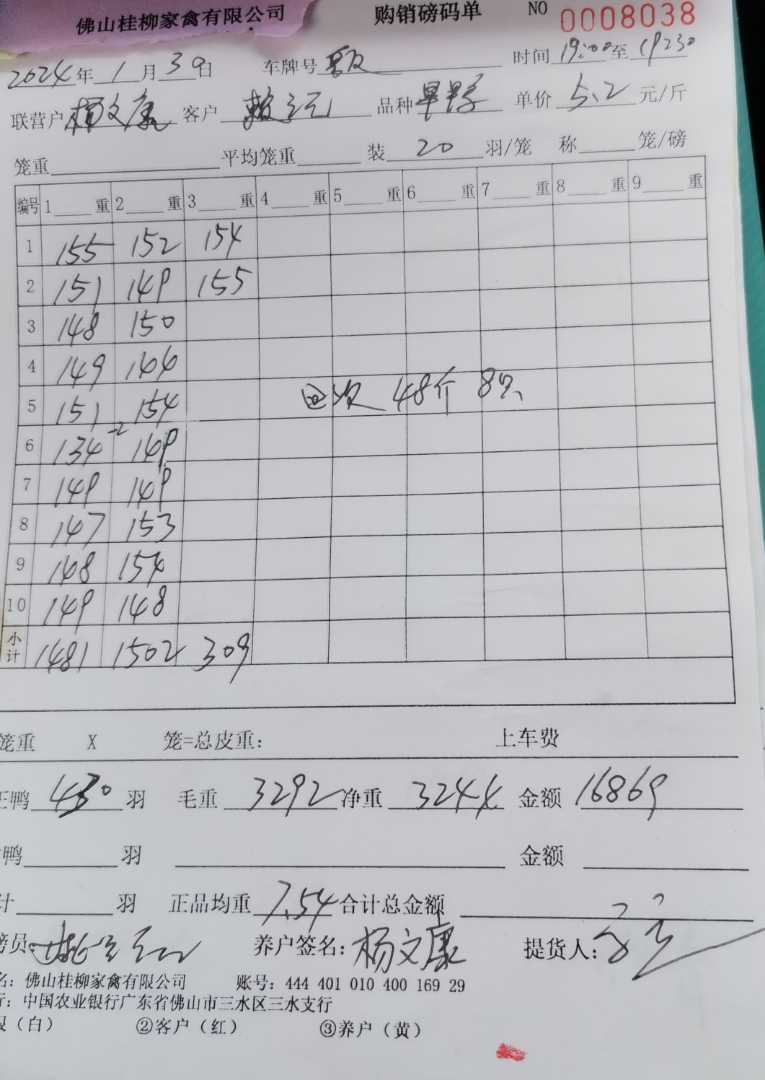 佛山桂柳家禽有限公司 购销磅码单 NO 0008038
2024年1月30日 车牌号 时间19:00至19:30
联营户 杨文康 客户 品种 单价 5.2 元/斤
笼重 平均笼重 装 20 羽/笼 称 笼/磅
编号 1 重 2 重 3 重 4 重 5 重 6 重 7 重 8 重 9 重
1 155 152 154
2 151 149 155
3 148 150
4 149 144
5 151 154 回次 48斤 8只
6 134 -2 149
7 149 149
8 147 153
9 148 154
10 149 148
小计 1481 1502 309
笼重 X 笼=总皮重: 上车费
正鸭 430 羽 毛重 3292 净重 3244 金额 16869
鸭 羽 金额
计 羽 正品均重 7.54 合计总金额
磅员: 养户签名: 杨文康 提货人:
名: 佛山桂柳家禽有限公司 账号: 444 401 010 400 169 29
行: 中国农业银行广东省佛山市三水区三水支行
(白) ②客户(红) ③养户(黄)